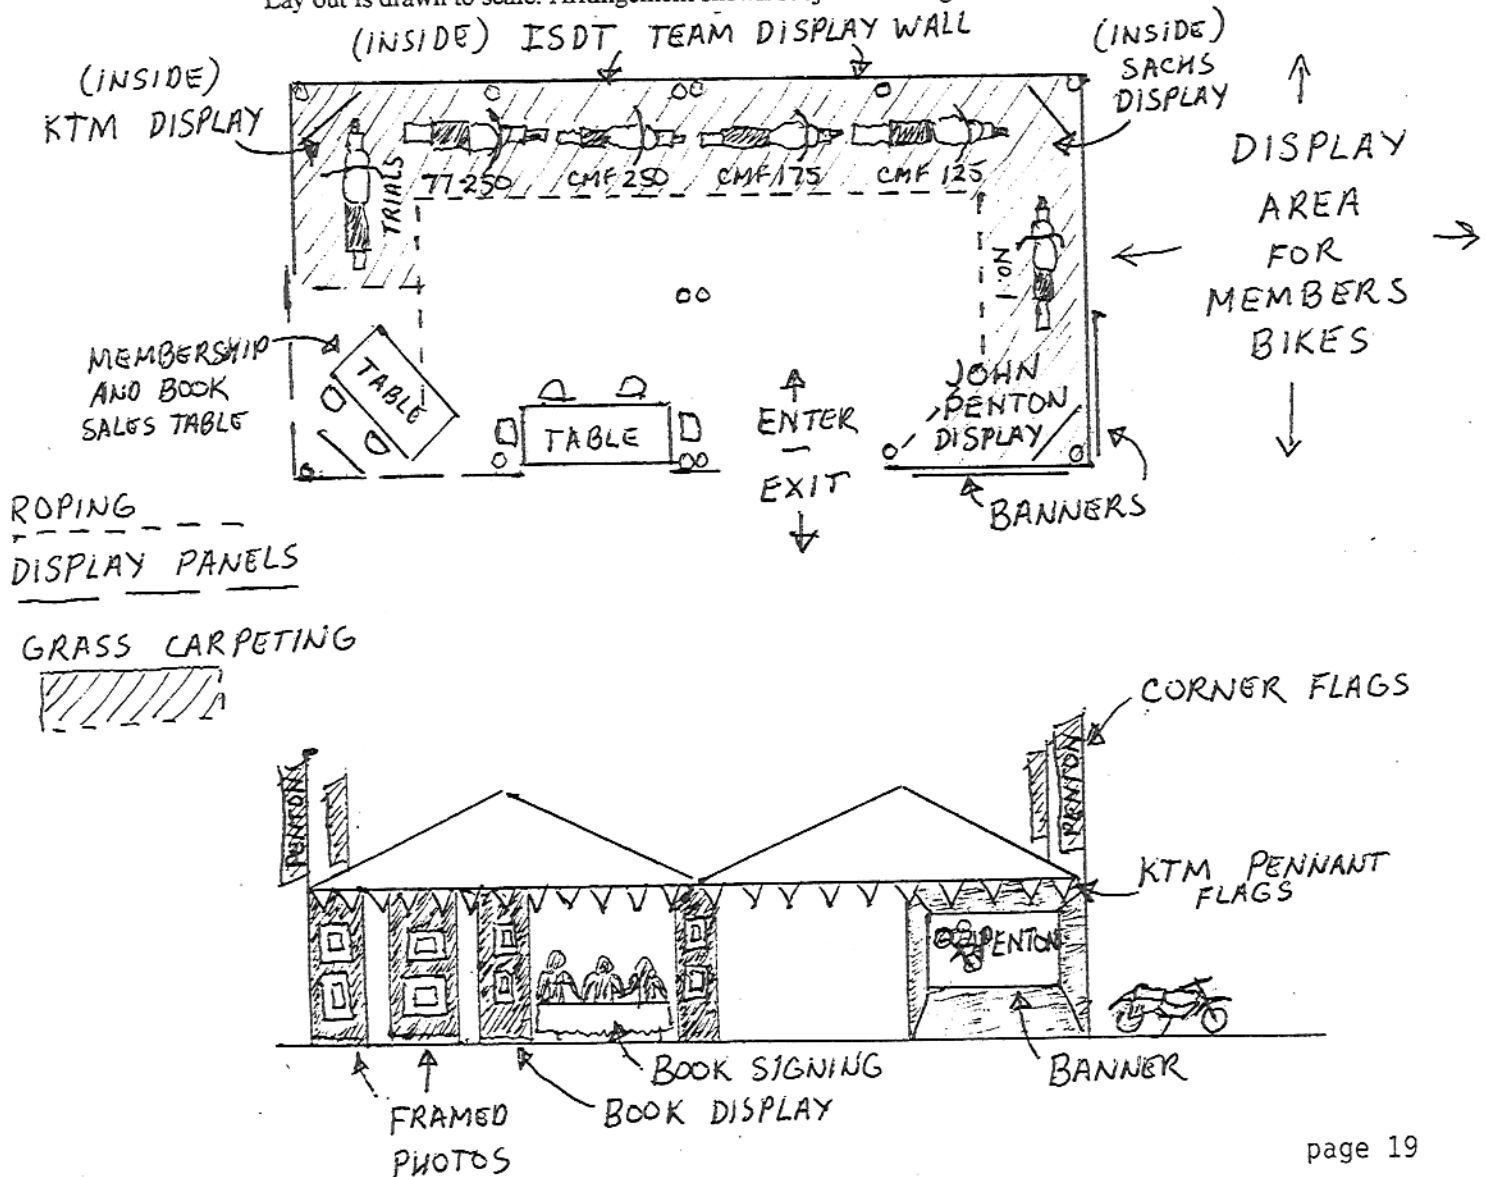 Lay out is drawn to scale. Arrangement
(INSIDE) ISDT TEAM DISPLAY WALL
(INSIDE)
KTM DISPLAY
(INSIDE)
SACHS
DISPLAY
TRIALS
77-250
CMF 250
CMF 175
CMF 125
NO. 1
DISPLAY
AREA
FOR
MEMBERS
BIKES
MEMBERSHIP
AND BOOK
SALES TABLE
TABLE
TABLE
ENTER
EXIT
JOHN
PENTON
DISPLAY
BANNERS
ROPING
DISPLAY PANELS
GRASS CARPETING
CORNER FLAGS
PENTON
PENTON
KTM PENNANT
FLAGS
PENTON
BOOK SIGNING
BOOK DISPLAY
BANNER
FRAMED
PHOTOS
page 19